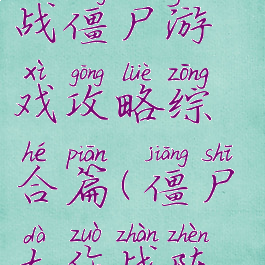 战僵尸游
xì gōng lüè zōng
戏攻略综
hé piān jiāng shī
合篇(僵尸
dà zuò zhàn zhèn